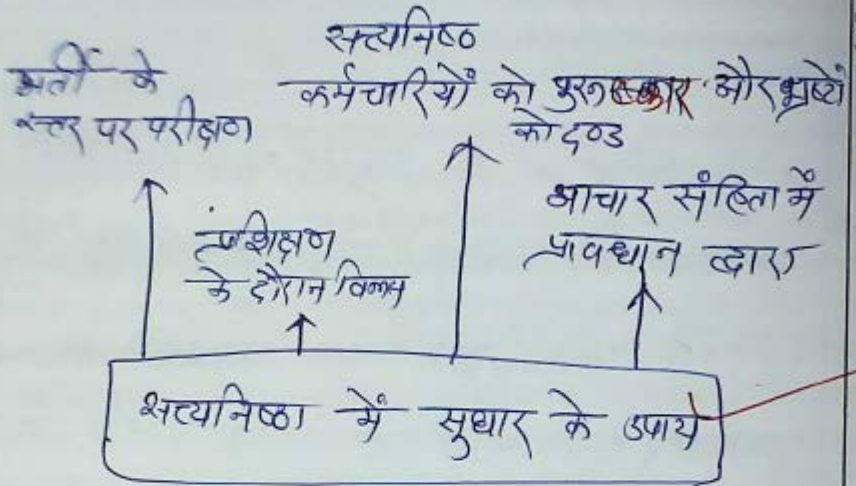 भर्ती के
स्तर पर परीक्षण
सत्यनिष्ठ
कर्मचारियों को पुरूस्कार और भ्रष्टों
को दण्ड
प्रशिक्षण
के दौरान
आचार संहिता में
प्रावधान द्वारा
सत्यनिष्ठा में सुधार के उपाय